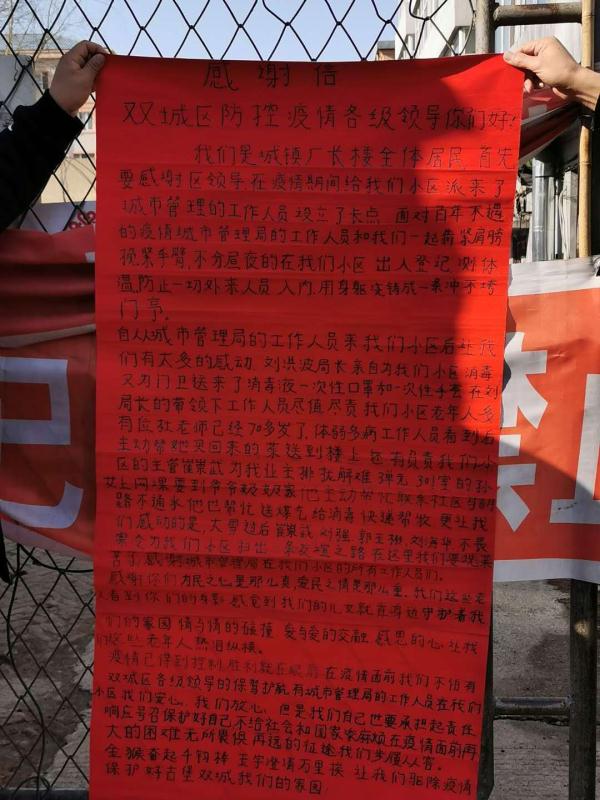 感谢信
双城区防控疫情各级领导你们好!
我们是城镇厂长楼全体居民,首先
要感谢区领导在疫情期间给我们小区派来了
城市管理的工作人员设立了长点,面对百年不遇
的疫情城市管理局的工作人员和我们一起肩紧肩膀
挽紧手臂,不分昼夜的在我们小区出入登记,测体
温,防止一切外来人员入内,用身躯铸成一条冲不垮
门亭。
自从城市管理局的工作人员来我们小区后让我
们有太多的感动,刘洪波局长亲自为我们小区消毒
又为门卫送来了消毒液一次性口罩和一次性手套在刘
局长的带领下工作人员尽值尽责我们小区老年人多
有位张老师已经70多岁了,体弱多病工作人员看到后
主动帮她买回来的菜送到楼上还有负责我们小
区的主管崔崇武为我业主排扰解难 单元301室的孙
女上网课要到爷爷 家他主动帮忙联系社区
路不通 他也帮忙送煤气给消毒快递帮收更让我
们感动的是,大雪过后崔崇武 刘强 郭玉 刘海华不畏
寒冷为我们小区扫出一条 之路在这里我们要说
苦了,感谢城市管理局在我们小区的所有工作人员们。
感谢你们为民之心是那么真,爱民之情是那么重,我们这些老
人看到你们的身影感觉到我们的儿女就在身边守护着我
们的家园情与情的碰撞 爱与爱的交融 感恩的心让我
们这些老年人热泪纵横。
疫情已得到控制,胜利就在眼前在疫情面前我们不怕有
双城区各级领导的保驾护航有城市管理局的工作人员在我们
小区我们安心,我们放心,但是我们自己也要承担起责任
响应号召保护好自己不给社会和国家添麻烦在疫情面前再
大的困难无所畏惧再远的征途我们步履人人
金猴奋起千钧棒 玉宇澄清万里埃 让我们驱除疫情
保护好古堡双城我们的家园